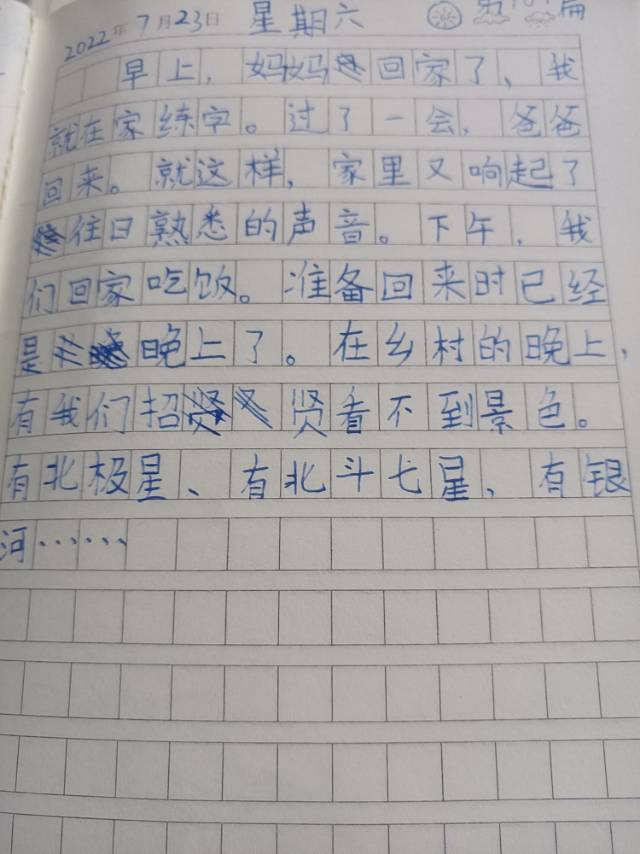 2022年7月23日 星期六 篇
早上，妈妈回家了、我
就在家练字。过了一会，爸爸
回来。就这样，家里又响起了
往日熟悉的声音。下午，我
们回家吃饭。准备回来时已经
是晚上了。在乡村的晚上，
有我们招贤看不到景色。
有北极星、有北斗七星，有银
河……